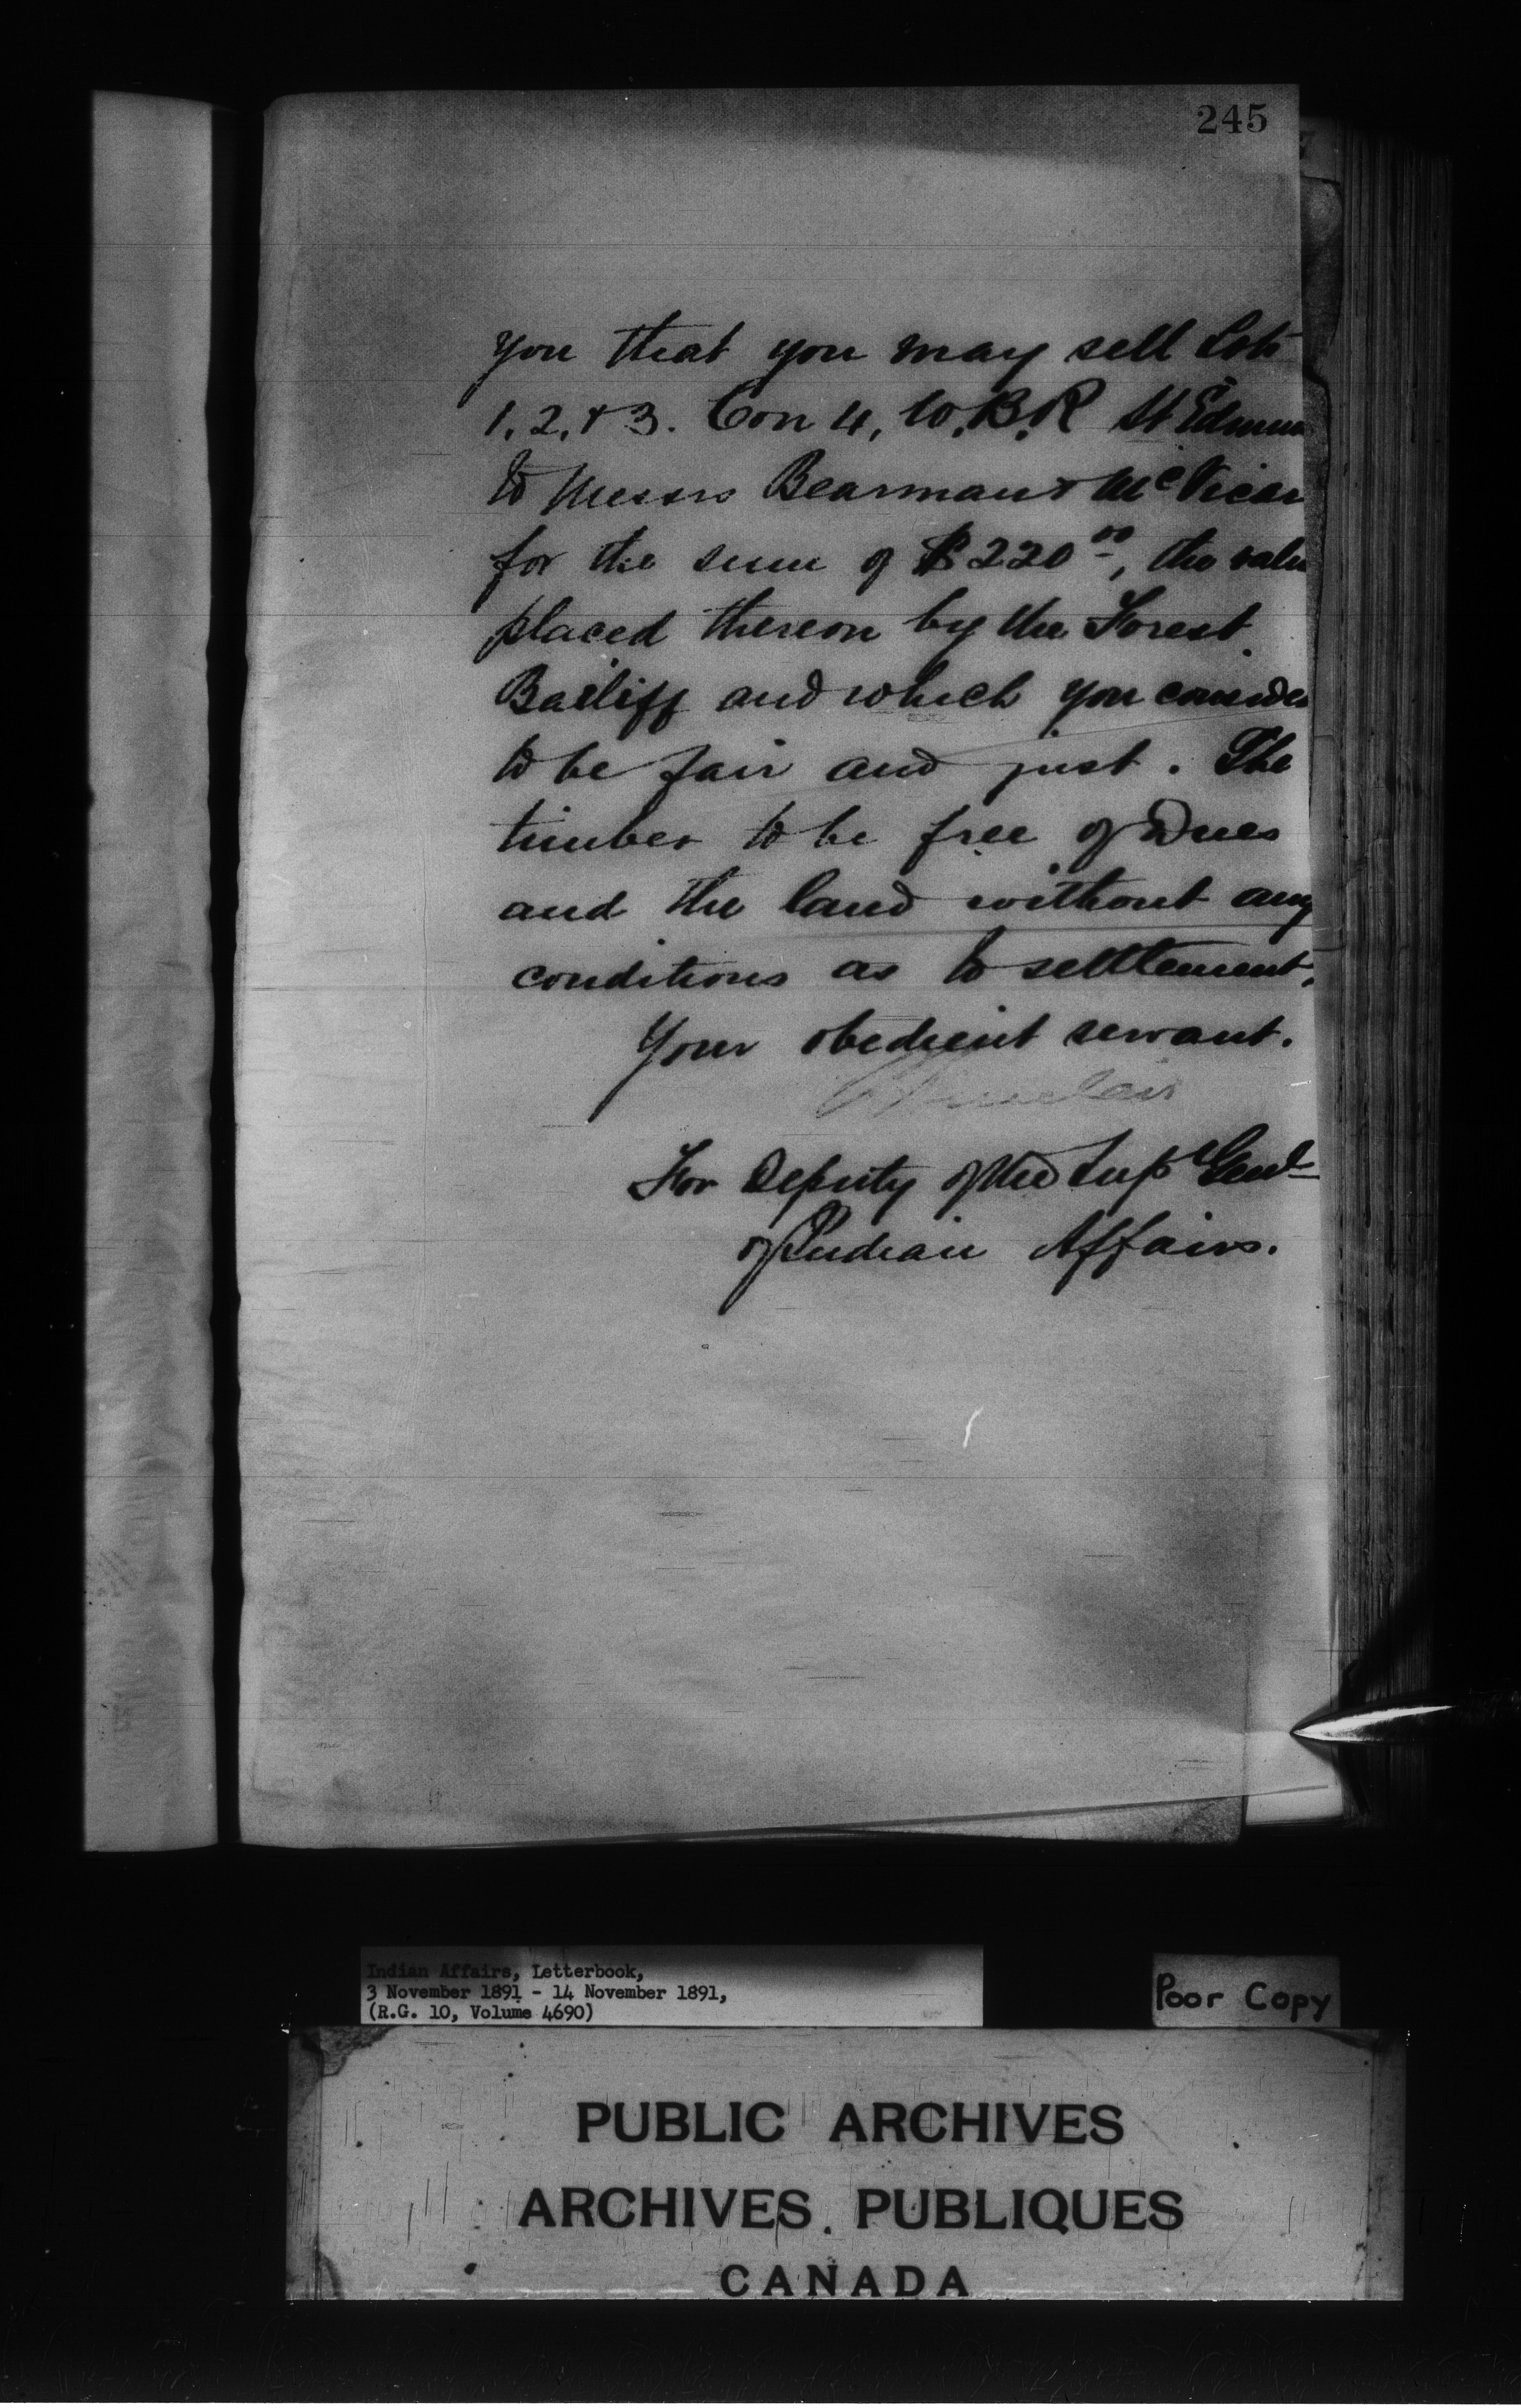 245
you that you may sell Lots
1, 2, & 3. Con 4, W.B.R St Edmun
to Messrs Bearman & McVicar
for the sum of $220 00, the valu
placed thereon by the Forest
Bailiff and which you consider
to be fair and just. The
timber to be free of Dues
and the land without any
conditions as to settlement.
Your obedient servant.
Sinclair
For Deputy of the Supt Genl
of Indian Affairs.
Indian Affairs, Letterbook,
3 November 1891 - 14 November 1891,
(R.G. 10, Volume 4690)
Poor Copy
PUBLIC ARCHIVES
ARCHIVES PUBLIQUES
CANADA